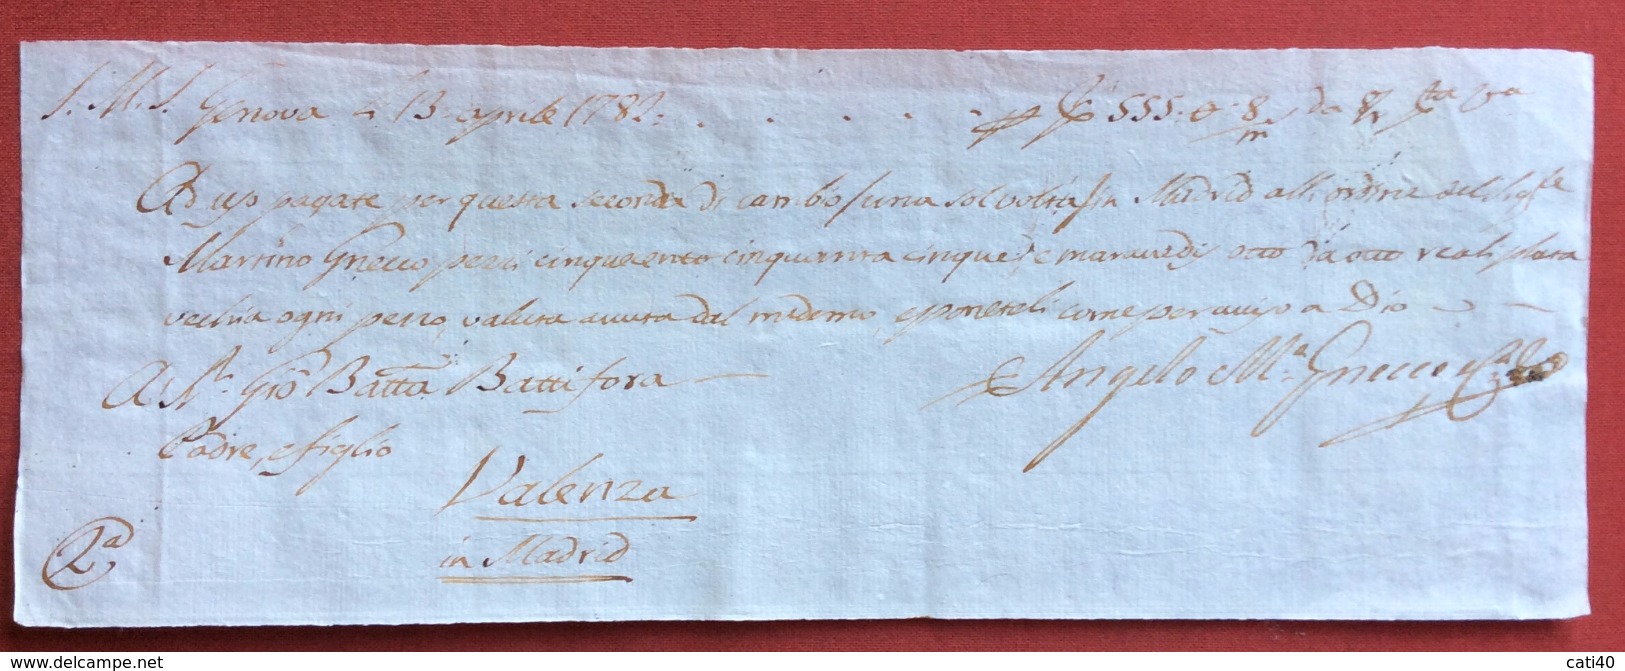 J. M. J. Genova a 13. aprile 1782: . . . . . 555. 8 da 8/r pta va
Ad uso pagate per questa seconda di cambio (una sol volta) in Madrid all'ordine del Sigre
Martino Gnecco pezzi cinquecento cinquanta cinque, e maravedis otto da otto reali plata
vechia ogni pezzo, valuta avuta dal medemo, e poneteli come per aviso a Dio
A Sr. Gio Batta Battifora Angelo Ma. Gnecco
Padre, e figlio
Valenza
in Madrid
2a
www.delcampe.net
cati40